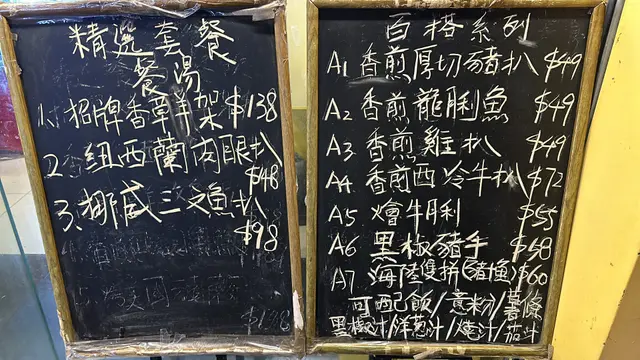 精選套餐
餐湯
1. 招牌香草羊架 $138
2. 紐西蘭肉眼扒
$148
3. 挪威三文魚扒
$98
百搭系列
A1 香煎厚切豬扒 $49
A2 香煎龍脷魚 $49
A3 香煎雞扒 $49
A4 香煎西冷牛扒 $72
A5 燴牛脷 $55
A6 黑椒豬手 $58
A7 海陸雙拼(豬魚) $60
可配飯/意粉/薯條
黑椒汁/洋蔥汁/燒汁/茄汁